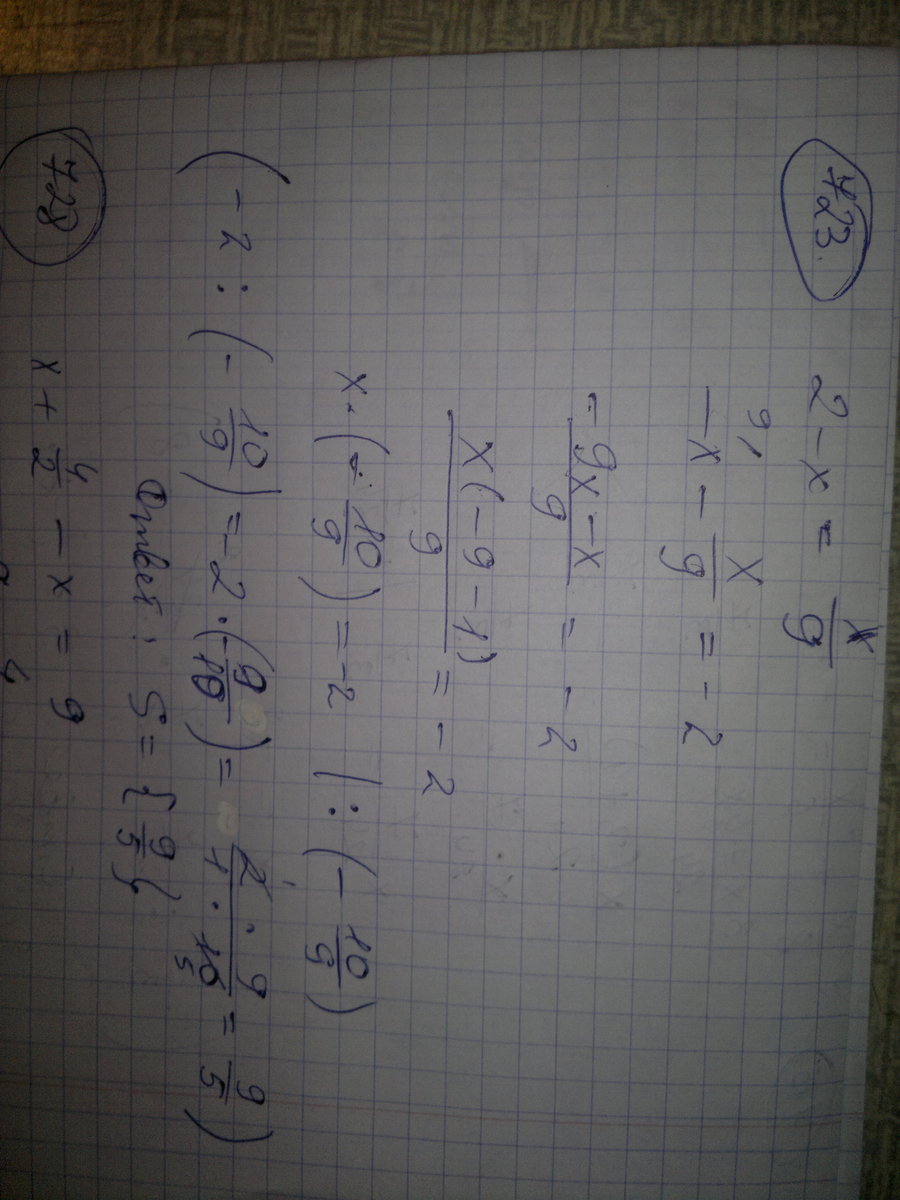 723. 2 - x = x/9
9/ -x - x/9 = -2
-9x - x / 9 = -2
x(-9-1) / 9 = -2
x · (- 10/9) = -2 | : (- 10/9)
(-2 : (- 10/9) = -2 · (- 9/10) = 2 · 9 / 1 · 10 5 = 9/5)
Ответ: S = { 9/5 }
728 x + 4/2 - x = 9